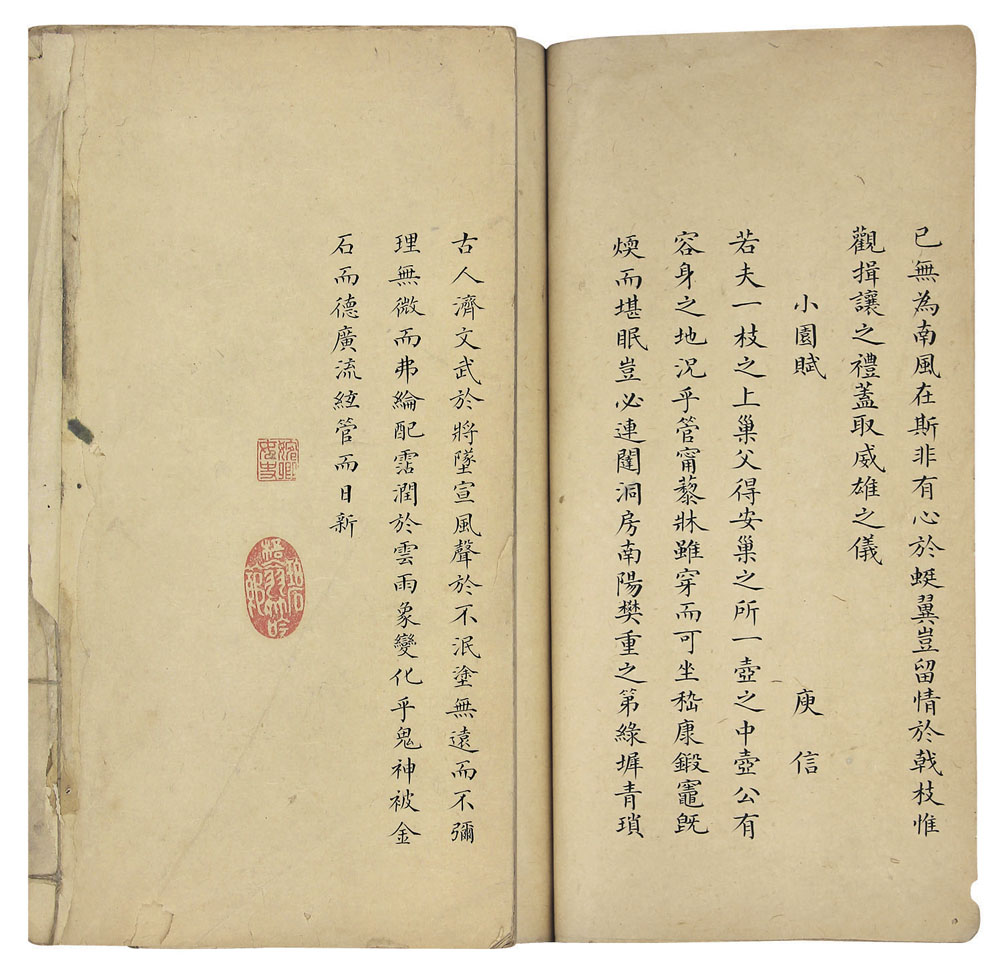 已無為南風在斯非有心於蜓翼豈留情於戟枝惟
觀揖讓之禮蓋取威雄之儀
小園賦　庾信
若夫一枝之上巢父得安巢之所一壺之中壺公有
容身之地況乎管甯藜牀雖穿而可坐嵇康鍛竈既
煗而堪眠豈必連闥洞房南陽樊重之第綠墀青瑣
古人濟文武於將墜宣風聲於不泯塗無遠而不彌
理無微而弗綸配霑潤於雲雨象變化乎鬼神被金
石而德廣流絃管而日新